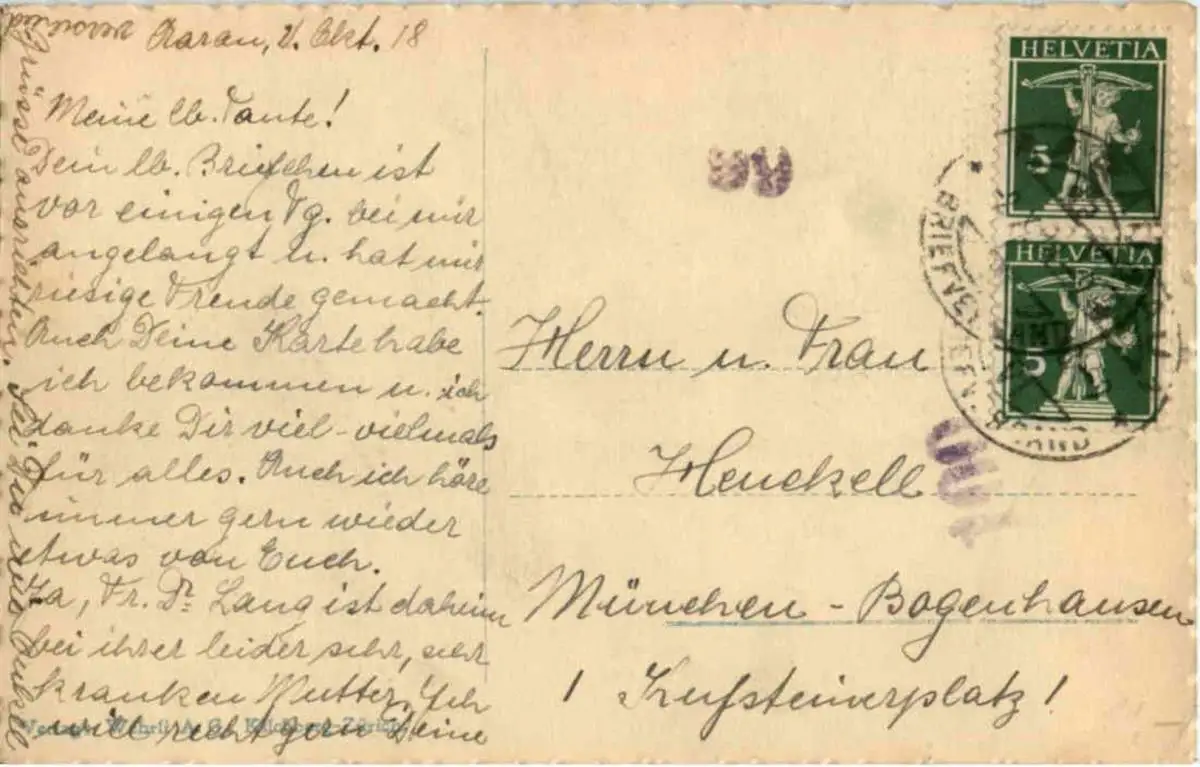 Aarau, 2. Okt. 18
Meine lb. Tante!
Dein lb. Briefchen ist
vor einigen Tg. bei mir
angelangt u. hat mir
riesige Freude gemacht.
Auch Deine Karte habe
ich bekommen u. ich
danke Dir viel-vielmals
für alles. Auch ich höre
immer gern wieder
etwas von Euch.
Ja, Fr. Dr. Lang ist daheim
bei ihrer leider sehr, sehr
kranken Mutter. Ich
will recht gern Deine
Grüsse ausrichten. Sei Du u. Onkel
HELVETIA
5
HELVETIA
5
BRIEF
Herrn u. Frau
Henckell
München-Bogenhausen
1 Kufsteinerplatz 1
Wehrli A. G., Kilchberg Zürich